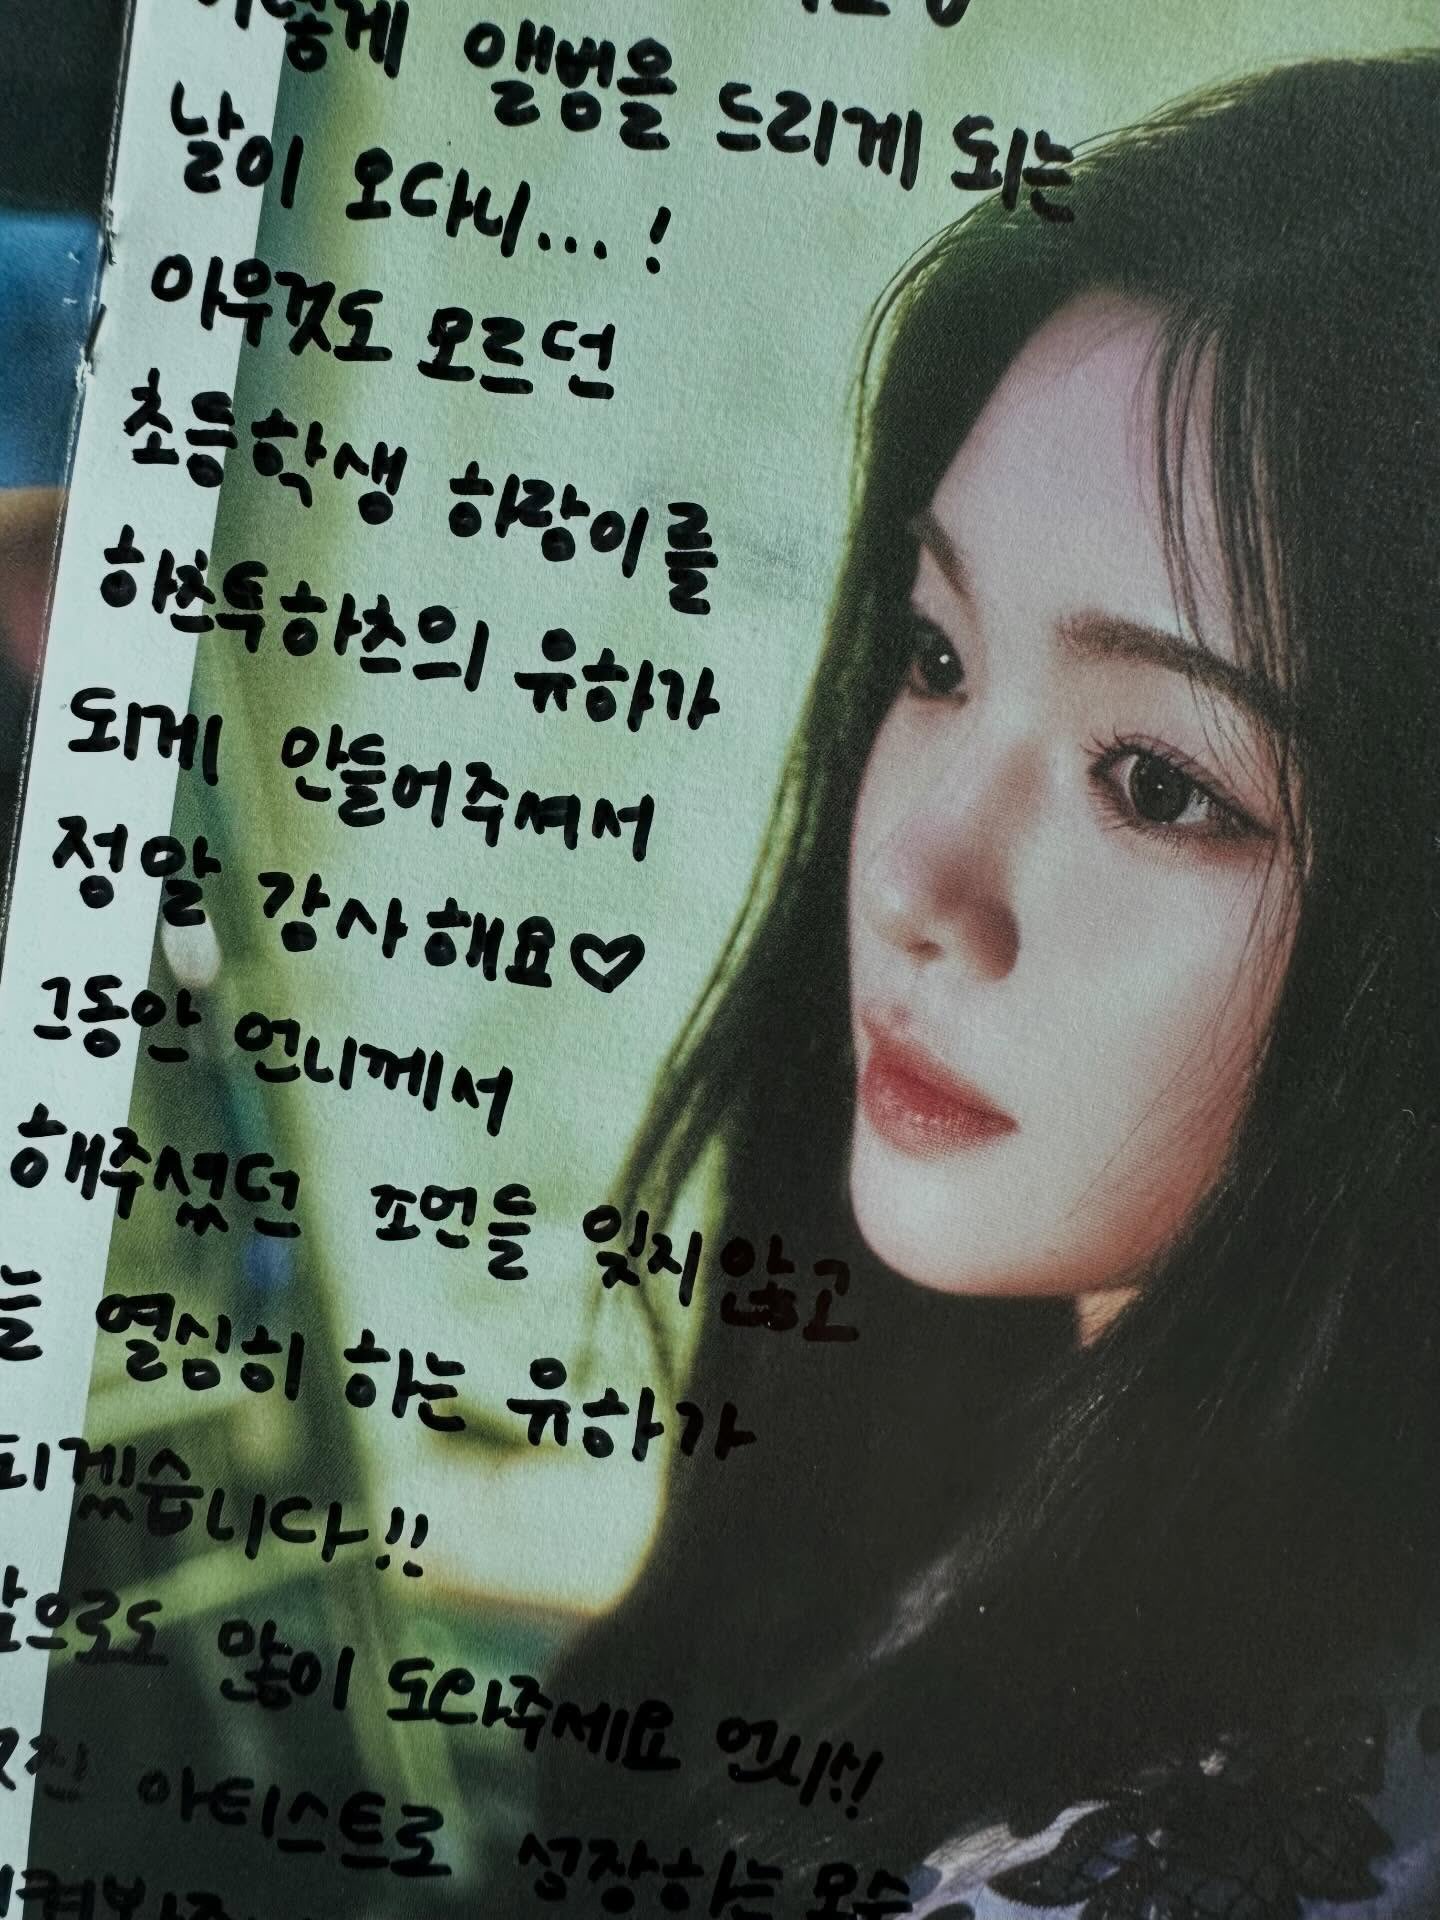 앨범을 드리게 되는
날이 오다니...!
아무것도 모르던
초등학생 하랑이를
하츠투하츠의 유하가
되게 만들어주셔서
정말 감사해요♡
그동안 언니께서
해주셨던 조언들 잊지 않고
늘 열심히 하는 유하가
되겠습니다!!
앞으로도 많이 도와주세요 언니!!
멋진 아티스트로 성장하는 모습